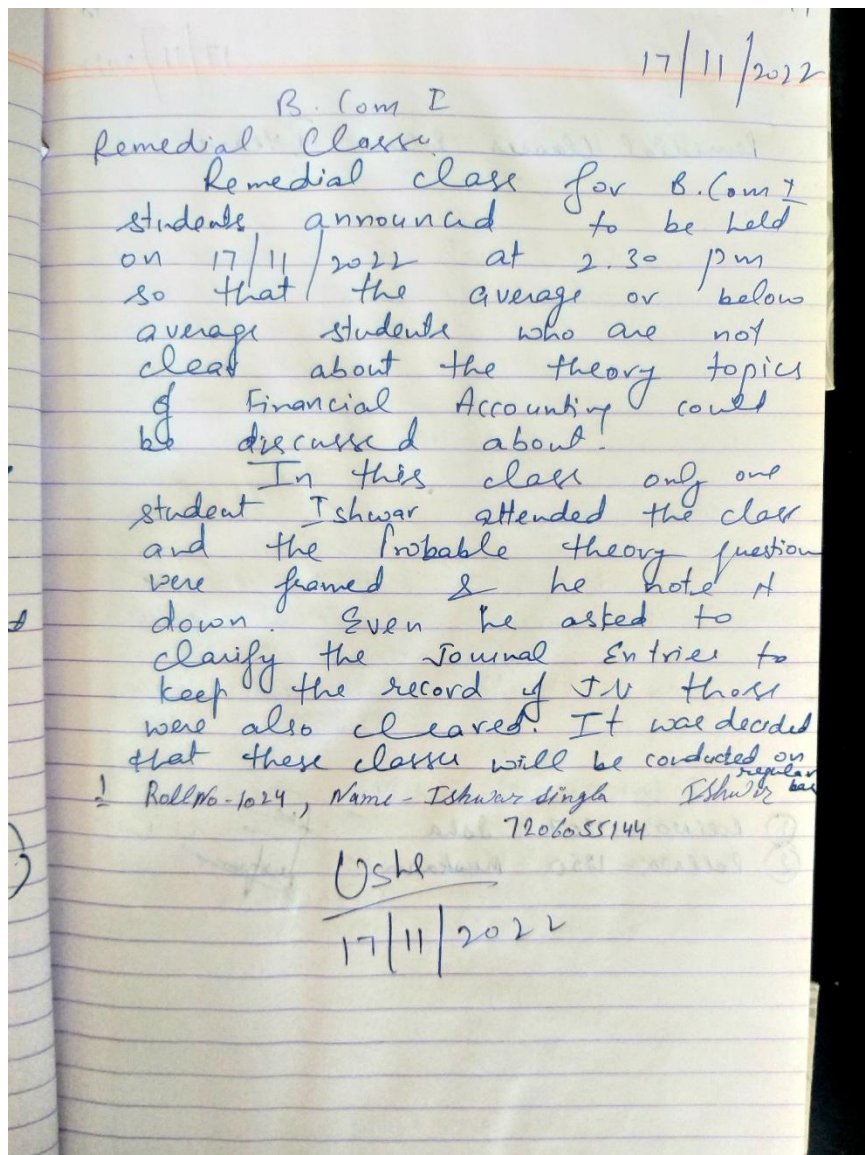 17/11/2022
B. Com I
Remedial Classes
Remedial class for B. Com I
students announced to be held
on 17/11/2022 at 2.30 pm
so that the average or below
average students who are not
clear about the theory topics
of Financial Accounting could
be discussed about.
In this class only one
student Ishwar attended the class
and the Probable theory question
were framed & he note it
down. Even he asked to
clarify the Journal Entries to
keep the record of those
were also cleared. It was decided
that these classes will be conducted on
regular bas
1 Roll No - 1024, Name - Ishwar Singla Ishwar
7206055144
Usha
17/11/2022